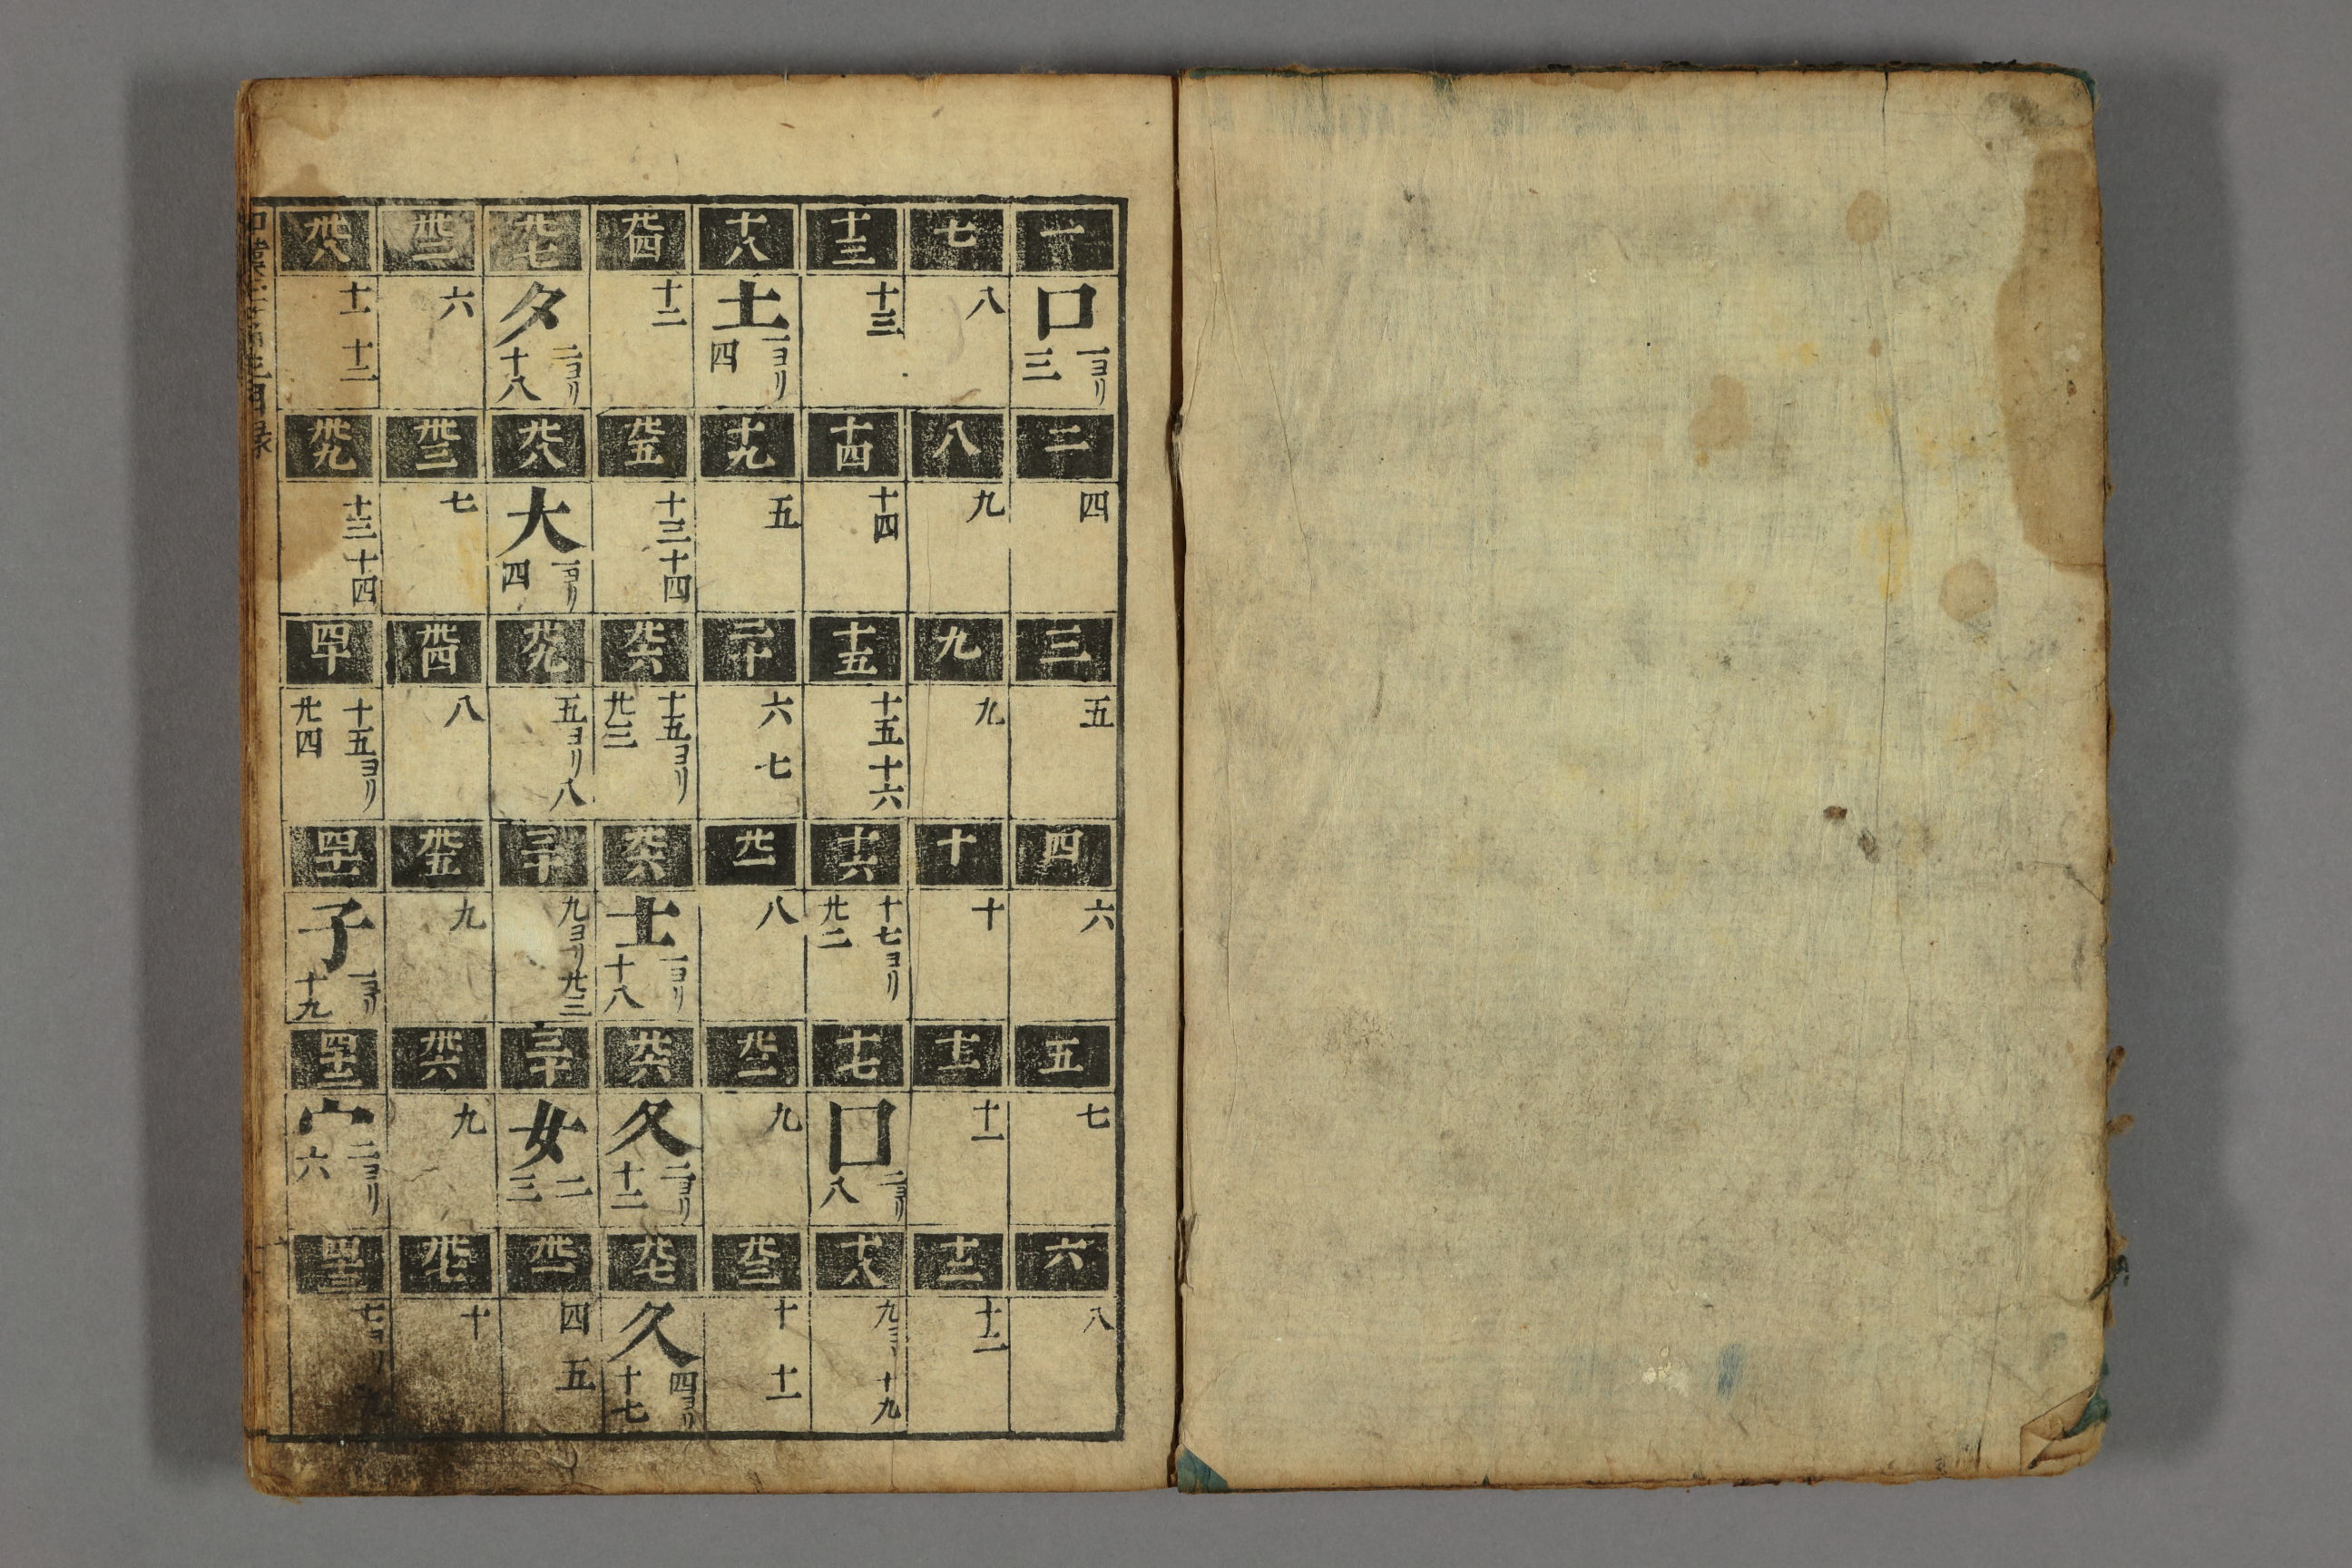 一
口 一ヨリ
三
二
四
三
五
四
六
五
七
六
八
七
八
八
九
九
九
十
十
十一
十一
十二
十二
十三
十三
十四
十四
十五
十五 十六
十六
十七ヨリ
廿二
十七
囗 二ヨリ
八
十八
九ヨリ 十九
十八
土 一ヨリ
四
十九
五
二十
六 七
廿一
八
廿二
九
廿三
十 十一
廿四
十二
廿五
十三 十四
廿六
十五ヨリ
廿三
廿六
士 一ヨリ
十八
廿六
夂 二ヨリ
十二
廿七
夂 四ヨリ
十七
廿七
夕 二ヨリ
十八
廿八
大 一ヨリ
四
廿九
五ヨリ 八
三十
九ヨリ 廿三
三十
女 二
三
卅一
四 五
卅二
六
卅三
七
卅四
八
卅五
九
卅六
九
卅七
十
卅八
十一 十二
卅九
十三 十四
四十
十五ヨリ
廿四
四十一
子 一ヨリ
十九
四十二
宀 二ヨリ
六
四十三
七ヨリ 九
目録